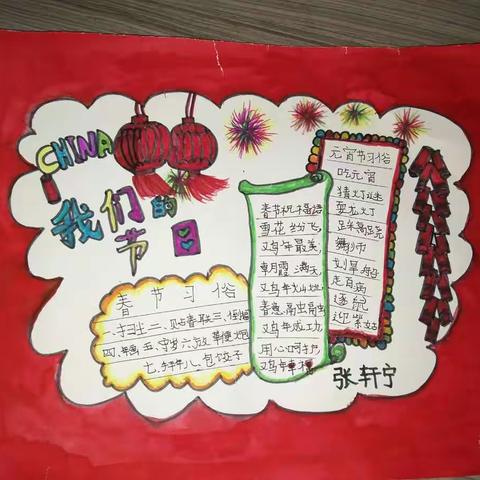 CHINA
我们的
节日
春节习俗
一、扫尘二、贴春联三、倒福
四、年画五、守岁六、放鞭炮
七、拜年八、包饺子
春节祝福语
雪花纷飞,
鸡年最美,
朝霞满天,
鸡年灿地,
春意融融
鸡年成功,
用心呵护
鸡年幸福
元宵节习俗
吃元宵
猜灯谜
耍龙灯
踩高跷
舞狮
划旱船
走百病
逐鼠
迎紫姑
张轩宁